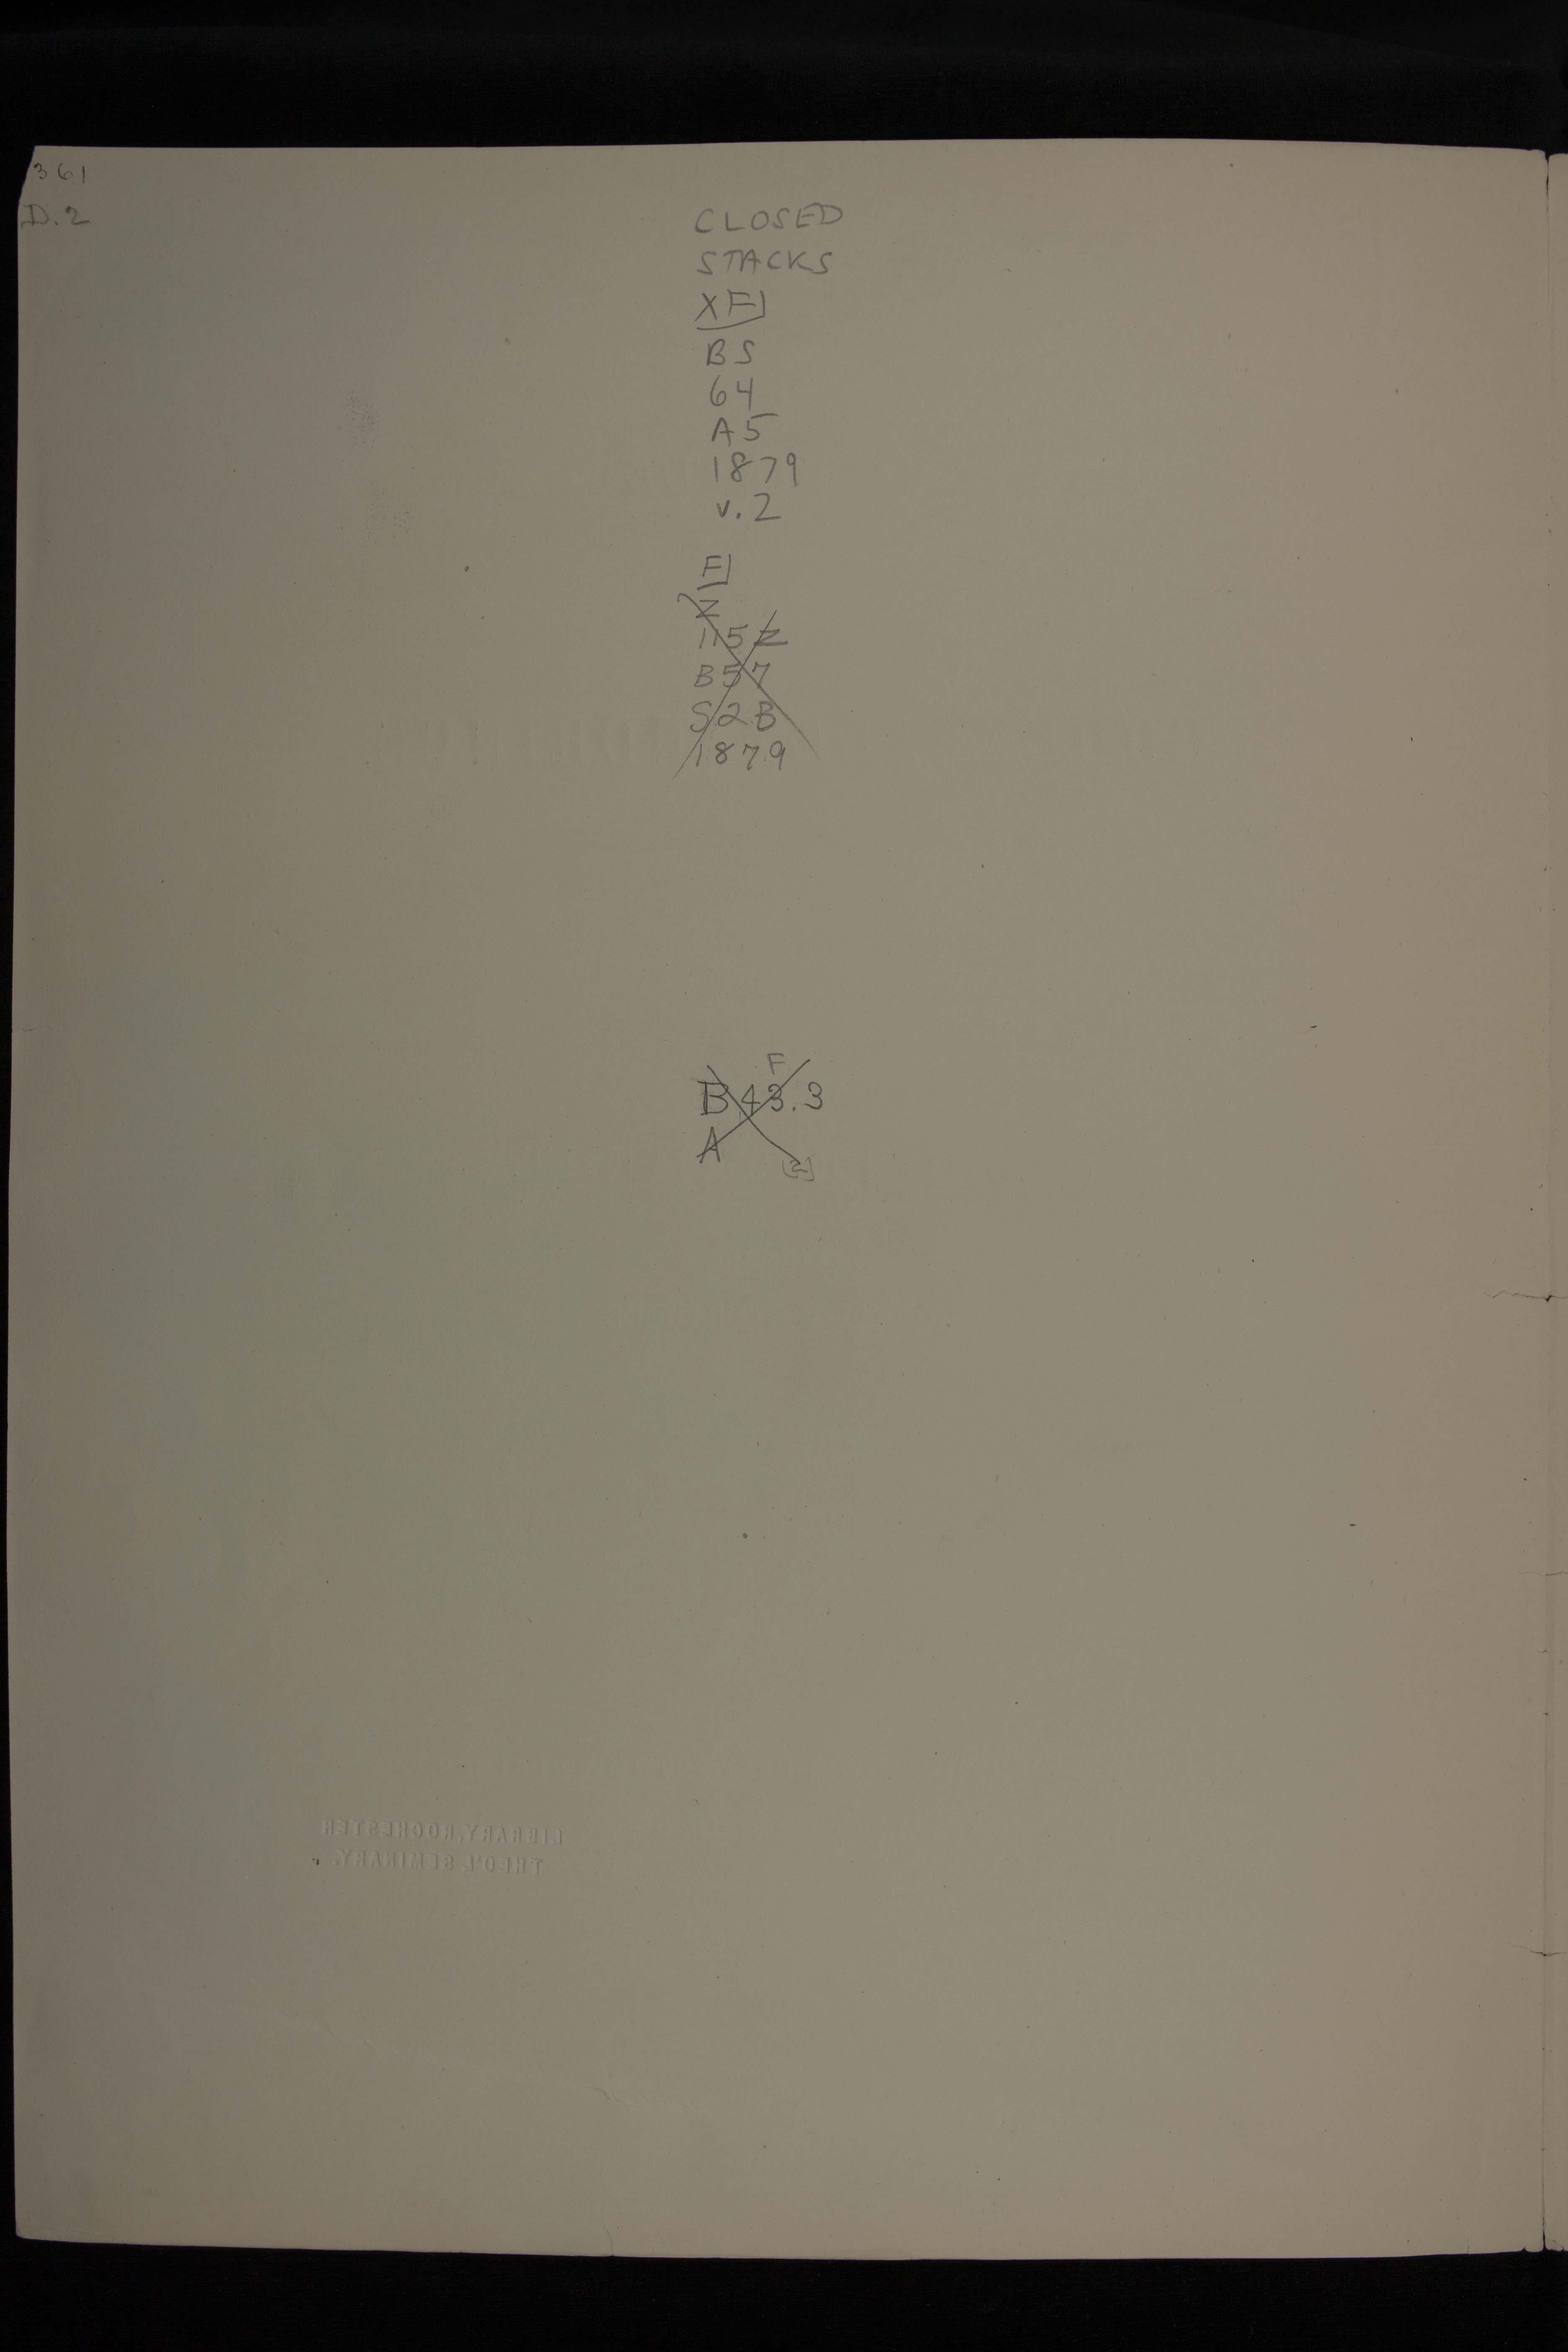 361
D.2
CLOSED
STACKS
XF
BS
64
A5
1879
v.2
F
Z
115Z
B57
S2B
1879
F
B43.3
A
[2]
LIBRARY, ROCHESTER
THEO'L SEMINARY.